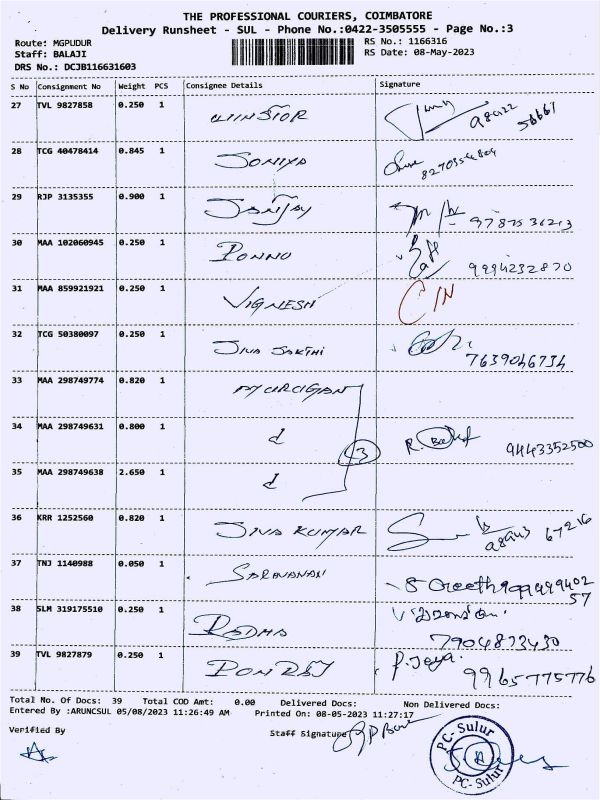 THE PROFESSIONAL COURIERS, COIMBATORE
Delivery Runsheet - SUL - Phone No.:0422-3505555 - Page No.:3
Route: MGPUDUR
Staff: BALAJI
DRS No.: DCJB116631603
RS No.: 1166316
RS Date: 08-May-2023
S No Consignment No Weight PCS Consignee Details Signature
27 TVL 9827858 0.250 1
28 TCG 40478414 0.845 1 SONIYA
29 RJP 3135355 0.900 1 SANJAY
30 MAA 102060945 0.250 1 PONNU 9994232870
31 MAA 859921921 0.250 1 VIGNESH
32 TCG 50380097 0.250 1 SIVA SAKTHI 7639046734
33 MAA 298749774 0.820 1 MURUGAN
34 MAA 298749631 0.800 1 d 3 9443352500
35 MAA 298749638 2.650 1 d
36 KRR 1252560 0.820 1 SIVA KUMAR 67216
37 TNJ 1140988 0.050 1 SARAVANAN
57
38 SLM 319175510 0.250 1 RADHA
7904873430
39 TVL 9827879 0.250 1 PONRAJ P. Jeya. 9965775776
Total No. Of Docs: 39 Total COD Amt: 0.00 Delivered Docs: Non Delivered Docs:
Entered By :ARUNCSUL 05/08/2023 11:26:49 AM Printed On: 08-05-2023 11:27:17
Verified By Staff Signature
PC-Sulur
PC-Sulur